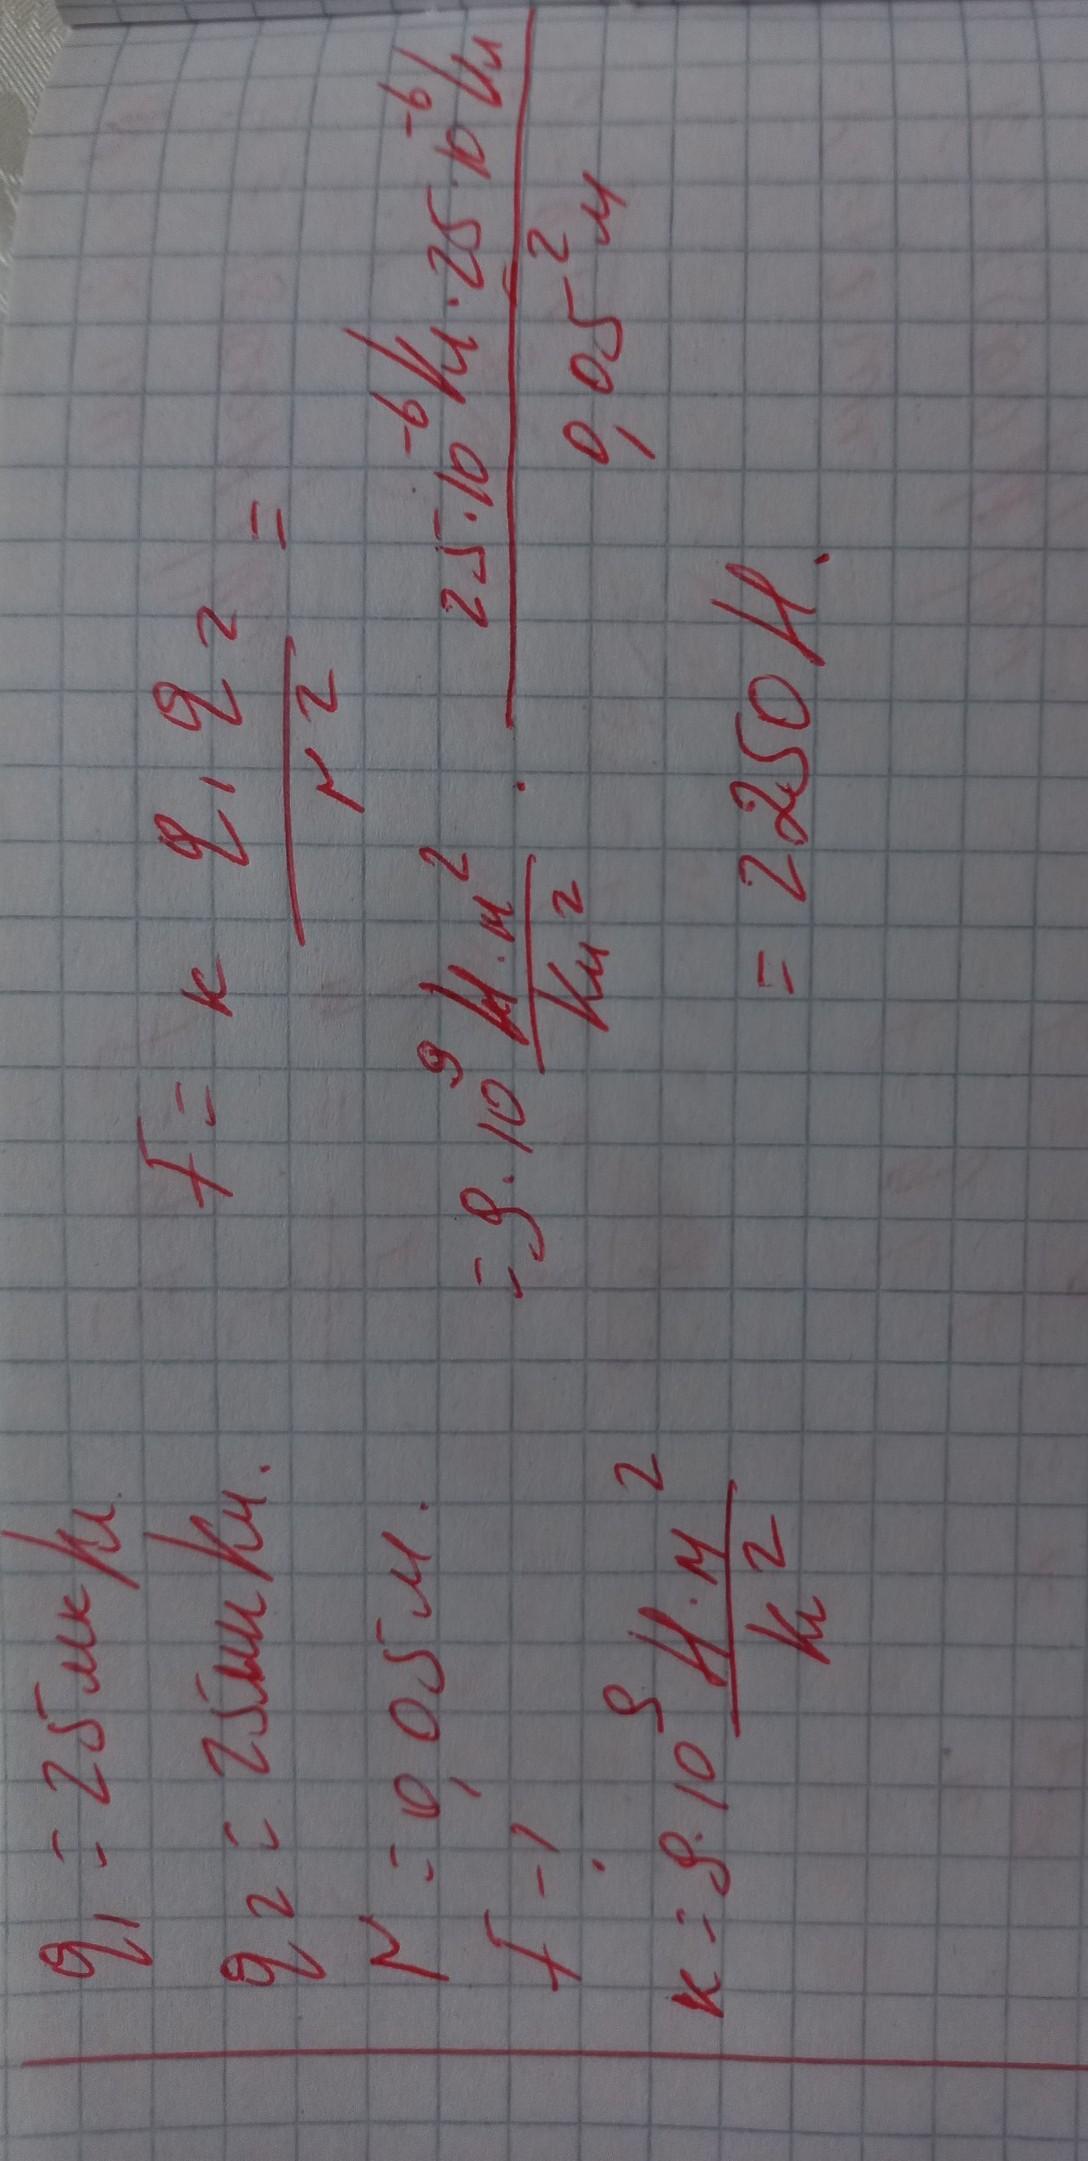 q₁ = 25 мкКл.
q₂ = 25 мкКл.
r = 0,05 м.
F - ?
k = 9·10⁹ Н·м²/Кл²
F = k q₁q₂/r² =
= 9·10⁹ Н·м²/Кл² · 25·10⁻⁶ Кл·25·10⁻⁶ Кл/0,05² м
= 2250 Н.